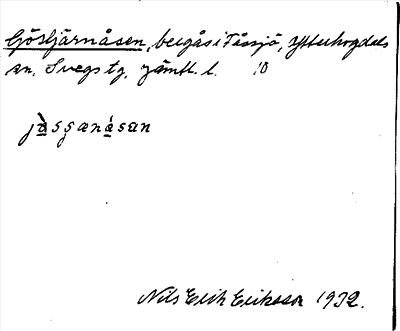 Göstjärnåsen, bergås i Tåssjö, Ytterhogdals
sn, Svegs tg, Jämtl. l. 10
Nils Erik Eriksson 1932.